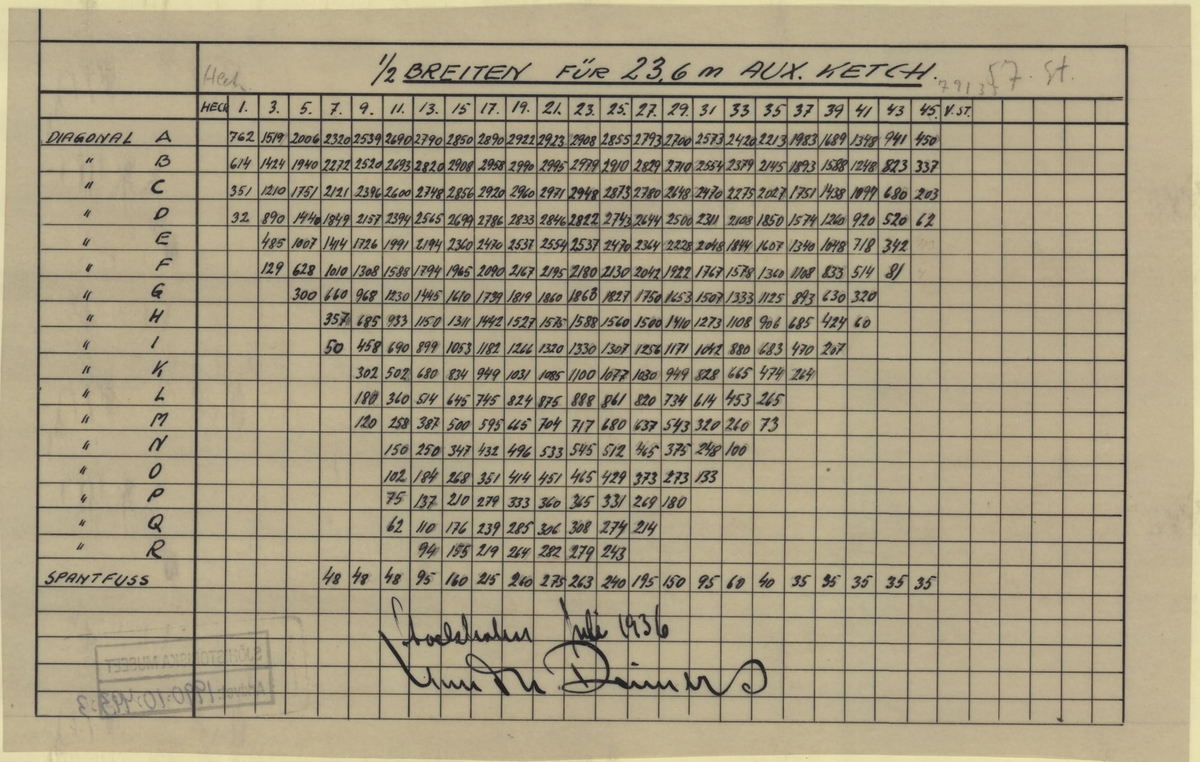 Heck
½ BREITEN FÜR 23,6 m AUX. KETCH.
57. St.
HECK 1. 3. 5. 7. 9. 11. 13. 15 17. 19. 21. 23. 25. 27. 29. 31 33 35 37 39 41 43 45. V.ST.
DIAGONAL A 762 1519 2006 2320 2539 2690 2790 2850 2890 2922 2923 2908 2855 2793 2700 2573 2420 2213 1983 1689 1348 941 450
" B 614 1424 1940 2272 2520 2693 2820 2908 2958 2990 2995 2979 2910 2829 2710 2554 2379 2145 1893 1588 1248 823 337
" C 351 1210 1751 2121 2396 2600 2748 2856 2920 2960 2971 2948 2873 2780 2648 2470 2275 2027 1751 1438 1099 680 203
" D 32 890 1440 1849 2157 2394 2565 2699 2786 2833 2846 2822 2743 2644 2500 2311 2108 1850 1574 1260 920 520 62
" E 485 1007 1414 1726 1991 2194 2360 2470 2537 2554 2537 2470 2364 2228 2048 1844 1607 1340 1048 718 342
" F 129 628 1010 1308 1588 1794 1965 2090 2167 2195 2180 2130 2042 1922 1767 1578 1360 1108 833 514 81
" G 300 660 968 1230 1445 1610 1739 1819 1860 1868 1827 1750 1653 1507 1333 1125 893 630 320
" H 357 685 933 1150 1311 1442 1527 1575 1588 1560 1500 1410 1273 1108 906 685 424 60
" I 50 458 690 899 1053 1182 1266 1320 1330 1307 1256 1171 1042 880 683 470 267
" K 302 502 680 834 949 1031 1085 1100 1077 1030 949 828 665 474 264
" L 180 360 514 645 745 824 875 888 861 820 734 614 453 265
" M 120 258 387 500 595 665 704 717 680 637 543 320 260 73
" N 150 250 347 432 496 533 545 512 465 375 248 100
" O 102 184 268 351 414 451 465 429 373 273 133
" P 75 137 210 279 333 360 365 331 269 180
" Q 62 110 176 239 285 306 308 274 214
" R 94 155 219 264 282 279 243
SPANTFUSS 48 48 48 95 160 215 260 275 263 240 195 150 95 60 40 35 35 35 35 35
Stockholm Juli 1936
Knud H. Reimers
SJÖHISTORISKA MUSEET
1990-10:443:3